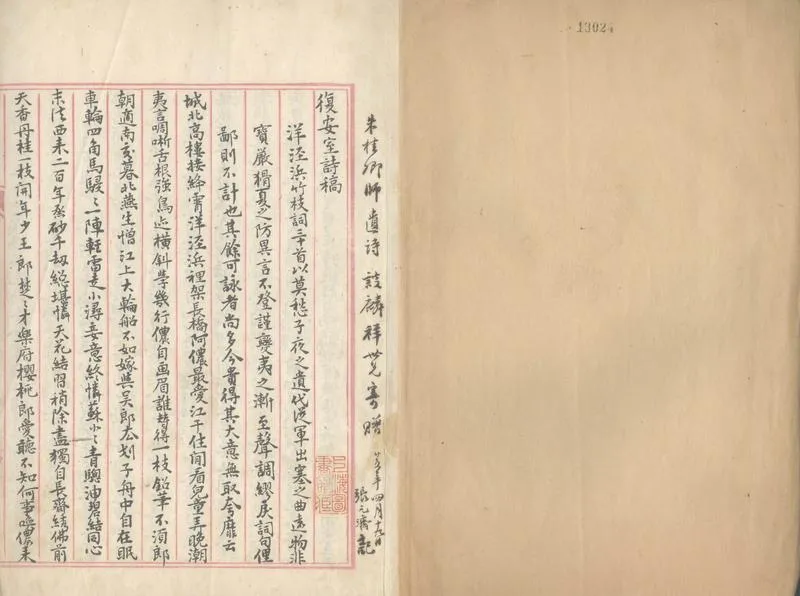 13024
朱桂卿師遺詩 詒麟祥世兄寄贈
廿五年四月十九日
張元濟記
上海圖書館藏
復安室詩稿
洋涇浜竹枝詞三十首以莫愁子夜之遺代從軍出塞之曲遠物非
寶嚴猾夏之防異言不登謹變夷之漸至聲調繆戾詞句俚
鄙則不計也其餘可詠者尚多今貴得其大意無取夸靡云
城北高樓接絳霄洋涇浜裡架長橋阿儂最愛江干住閒看兒童弄晚潮
夷言啁哳舌根強鳥迹橫斜學幾行儂自画眉誰替得一枝鉛華不須郎
朝適南交暮北燕生憎江上大輪船不如嫁與吳郎去划子舟中自在眠
車輪四角馬駸〻一陣輕雷走小潯妾意終憐蘇小〻青驄油碧結同心
末法西來二百年砂千劫總堪憐天花結習稍除盡獨自長齋綉佛前
天香丹桂一枝開年少王郎楚〻才樂府櫻桃郎愛聽不知何事儂來